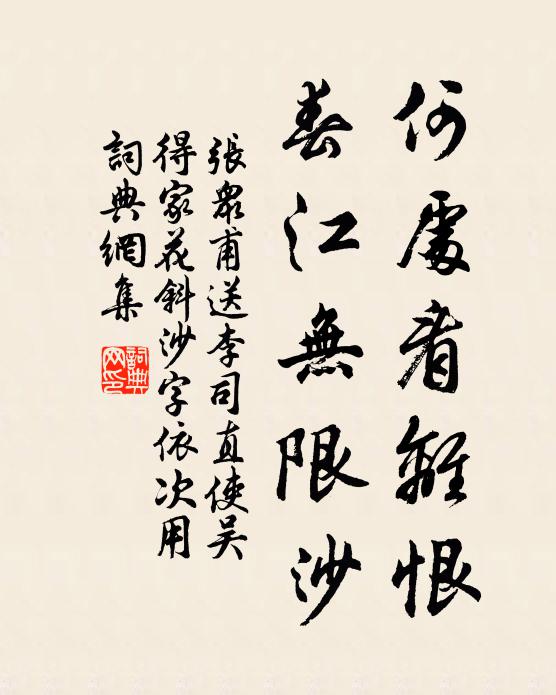 何處看離恨
春江無限沙
張眾甫送李司直使吴
得家花斜沙字依次用
詞典網集
詞典網印